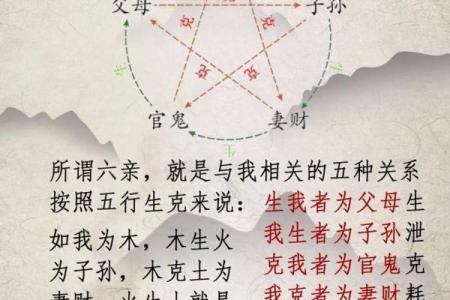 父母
子孙
克
克
克
克
生
生
官鬼
妻财
所谓六亲，就是与我相关的五种关系
按照五行生克来说：生我者为父母生
如我为木，木生火 我生者为子孙泄
为子孙，木克土为 克我者为官鬼克
我克者为妻财耗